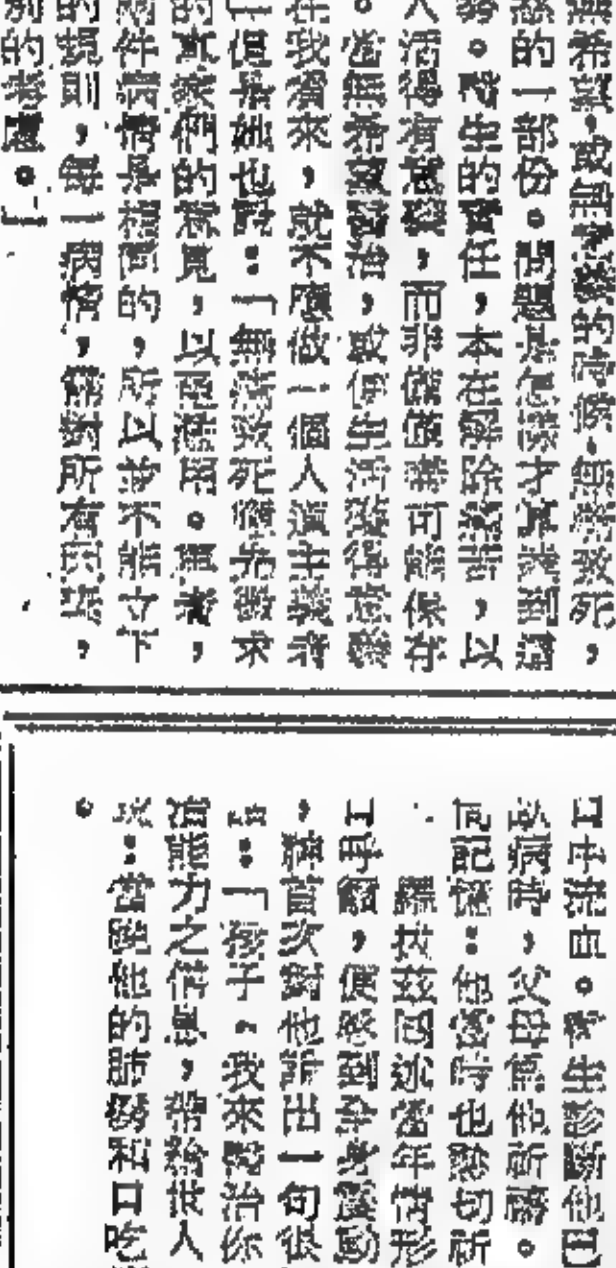 無希望,或無意義的時候,無痛致死,
慈的一部份。問題是怎樣才算達到這
務。醫生的責任,本在解除懲罰,以
人活得有意義,而非僅僅盡可能保存
。當無希望醫治,或使生活變得意義
在我看來,就不應做一個人道主義者
」但是她也說:「無痛致死須先徵求
的直系親們的意見,以免濫用。再者,
兩件病情是相同的,所以並不能立下
的規則,每一病情,需對所有因素,
別的考慮。」
口中流血。醫生診斷他已
臥病時,父母為他祈禱。
何記憶:他當時也懇切祈
羅拔茲回述當年情形
口呼籲,便感到全身震動
,神首次對他訴出一句很
話:「孩子,我來醫治你
治能力之信息,帶給世人
說:當晚他的肺癆和口吃
。